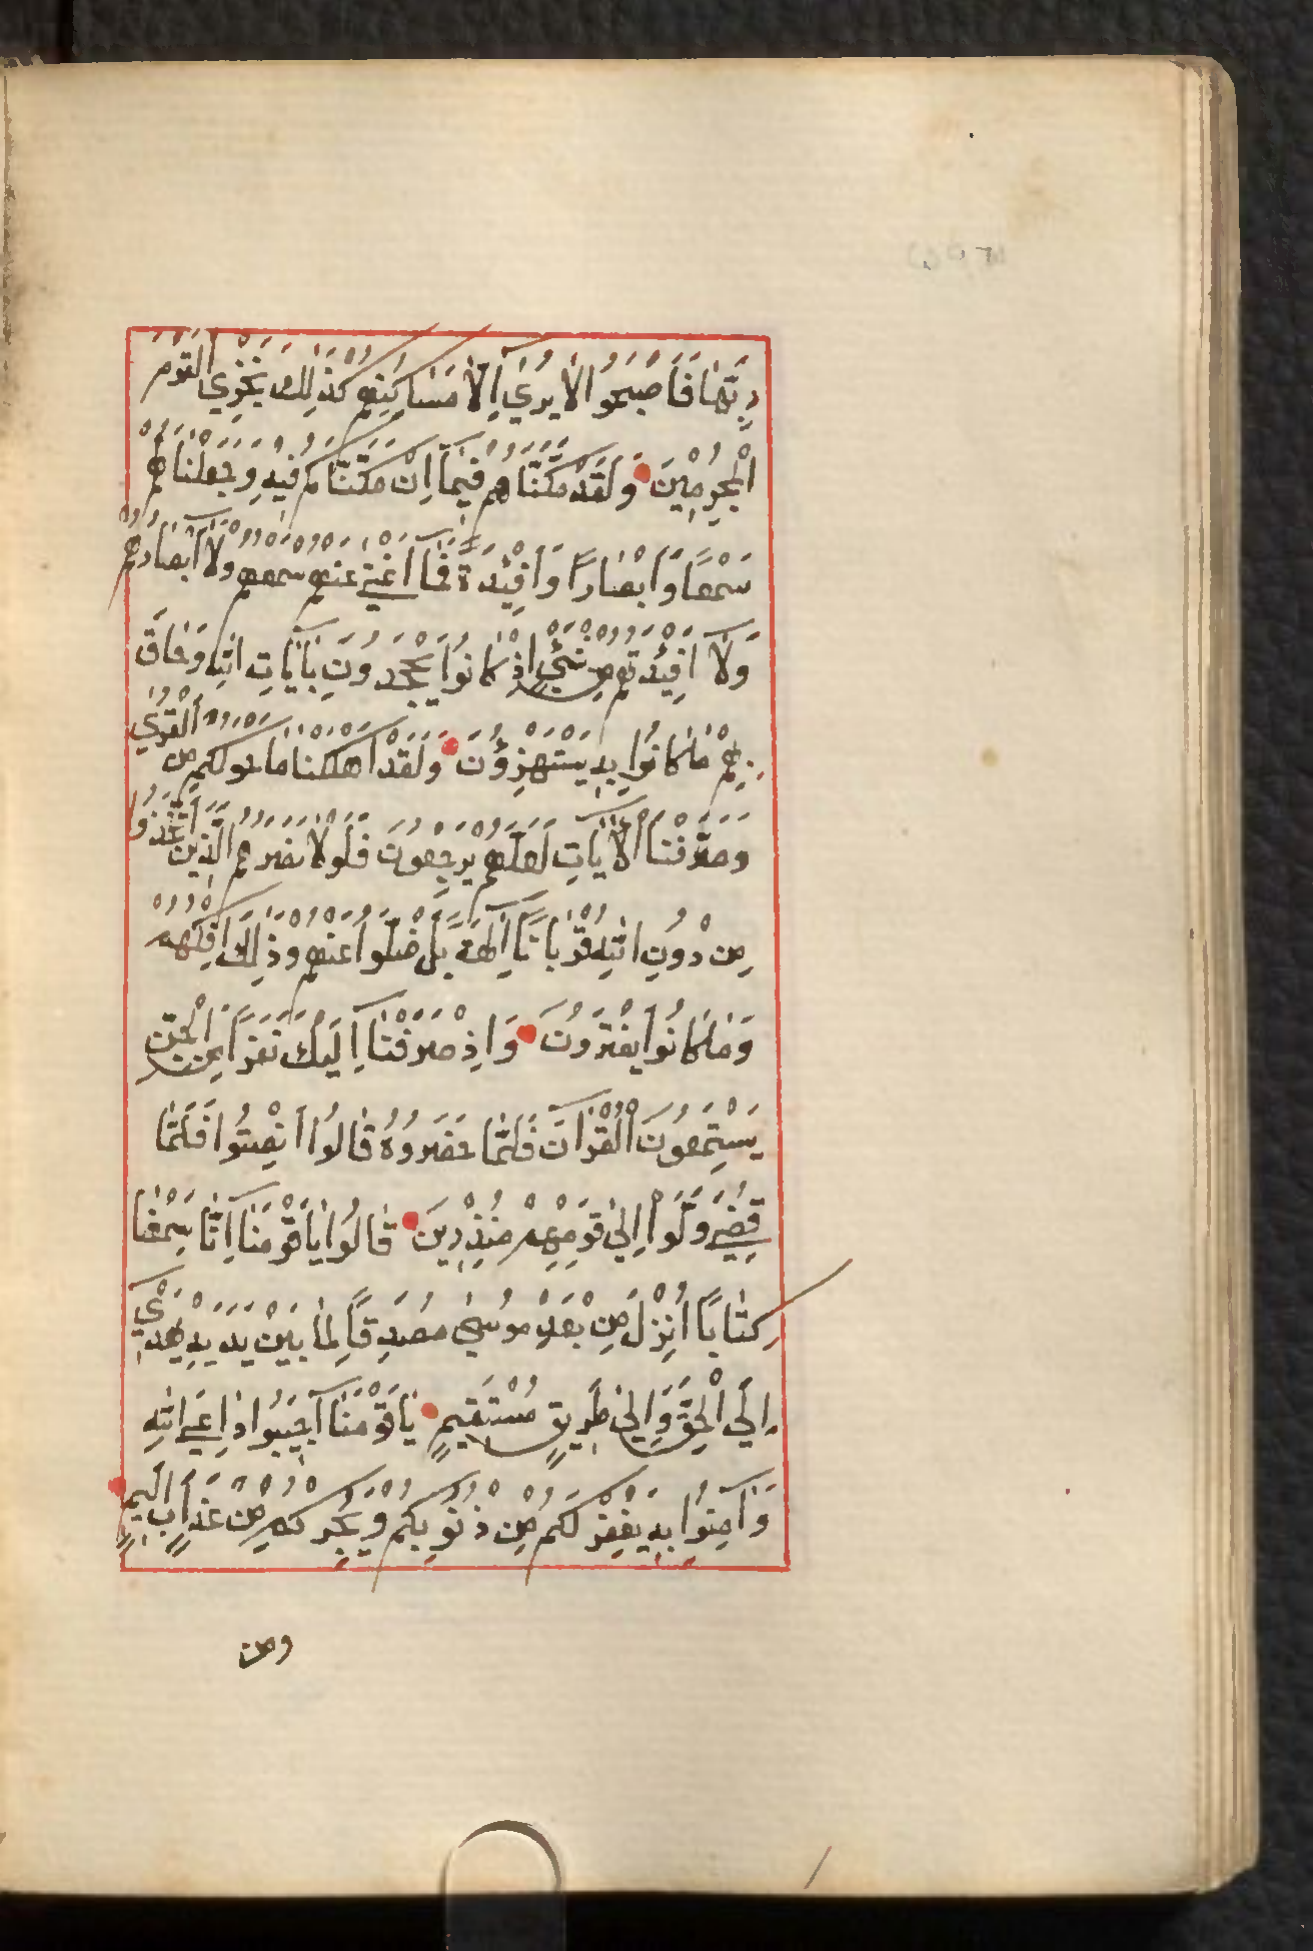 رَبِّهَا فَاَصْبَحُوا لَا يُرٰىٓ اِلَّا مَسَاكِنُهُمْ كَذٰلِكَ نَجْزِي الْقَوْمَ
الْمُجْرِمِينَ وَلَقَدْ مَكَّنَّاهُمْ فِيمَآ اِنْ مَكَّنَّاكُمْ فِيهِ وَجَعَلْنَا لَهُمْ
سَمْعًا وَاَبْصَارًا وَاَفْئِدَةً فَمَآ اَغْنٰى عَنْهُمْ سَمْعُهُمْ وَلَآ اَبْصَارُهُمْ
وَلَآ اَفْئِدَتُهُمْ مِنْ شَيْءٍ اِذْ كَانُوا يَجْحَدُونَ بِاٰيَاتِ اللّٰهِ وَحَاقَ
بِهِمْ مَا كَانُوا بِهِ يَسْتَهْزِؤُنَ وَلَقَدْ اَهْلَكْنَا مَا حَوْلَكُمْ مِنَ الْقُرٰى
وَصَرَّفْنَا الْاٰيَاتِ لَعَلَّهُمْ يَرْجِعُونَ فَلَوْلَا نَصَرَهُمُ الَّذِينَ اتَّخَذُوا
مِنْ دُونِ اللّٰهِ قُرْبَانًا اٰلِهَةً بَلْ ضَلُّوا عَنْهُمْ وَذٰلِكَ اِفْكُهُمْ
وَمَا كَانُوا يَفْتَرُونَ وَاِذْ صَرَفْنَآ اِلَيْكَ نَفَرًا مِنَ الْجِنِّ
يَسْتَمِعُونَ الْقُرْاٰنَ فَلَمَّا حَضَرُوهُ قَالُوٓا اَنْصِتُوا فَلَمَّا
قُضِيَ وَلَّوْا اِلٰى قَوْمِهِمْ مُنْذِرِينَ قَالُوا يَا قَوْمَنَآ اِنَّا سَمِعْنَا
كِتَابًا اُنْزِلَ مِنْ بَعْدِ مُوسٰى مُصَدِّقًا لِمَا بَيْنَ يَدَيْهِ يَهْدِٓي
اِلَى الْحَقِّ وَاِلٰى طَرِيقٍ مُسْتَقِيمٍ يَا قَوْمَنَآ اَجِيبُوا دَاعِيَ اللّٰهِ
وَاٰمِنُوا بِهِ يَغْفِرْ لَكُمْ مِنْ ذُنُوبِكُمْ وَيُجِرْكُمْ مِنْ عَذَابٍ اَلِيمٍ
ومن